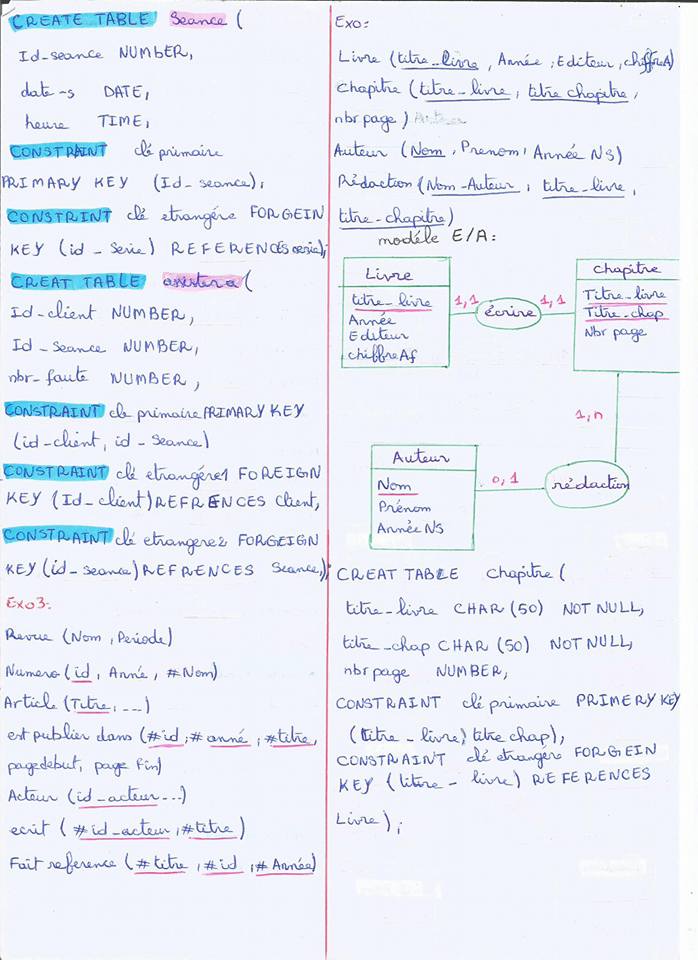 CREATE TABLE Seance (
Id-seance NUMBER,
date-s DATE,
heure TIME,
CONSTRAINT clé primaire
PRIMARY KEY (Id-seance),
CONSTRINT clé etrangére FORGEIN
KEY (id-serie) REFERENCES serie);
CREAT TABLE assistera (
Id-client NUMBER,
Id-Seance NUMBER,
nbr-faute NUMBER,
CONSTRAINT cle primaire PRIMARY KEY
(id-client, id-seance)
CONSTRAINT clé etrangére1 FOREIGN
KEY (Id-client) REFRENCES Client,
CONSTRAINT clé etrangere2 FORGEIGN
KEY (id-seance) REFRENCES Seance,);
Exo3:
Revue (Nom, Periode)
Numero (id, Année, #Nom)
Article (Titre, ...)
est publier dans (#id, #anné, #titre,
pagedebut, page fin)
Acteur (id_acteur...)
ecrit (#id_acteur, #titre)
Fait reference (#titre, #id, #Année)
Exo:
Livre (titre_livre, Année, Editeur, chiffreA)
Chapitre (titre_livre, titre chapitre,
nbr page)
Auteur (Nom, Prenom, Année NS)
Rédaction (Nom-Auteur, titre-livre,
titre-chapitre)
modéle E/A:
Livre
titre-livre
Année
Editeur
chiffre Af
1,1
écrire
1,1
chapitre
Titre-livre
Titre-chap
Nbr page
1,n
Auteur
Nom
Prénom
Année NS
0,1
rédaction
CREAT TABLE chapitre (
titre-livre CHAR (50) NOT NULL,
titre-chap CHAR (50) NOT NULL,
nbr page NUMBER,
CONSTRAINT clé primaire PRIMERY KEY
(titre-livre, titre chap),
CONSTRAINT clé etrangére FORGEIN
KEY (titre-livre) REFERENCES
Livre);